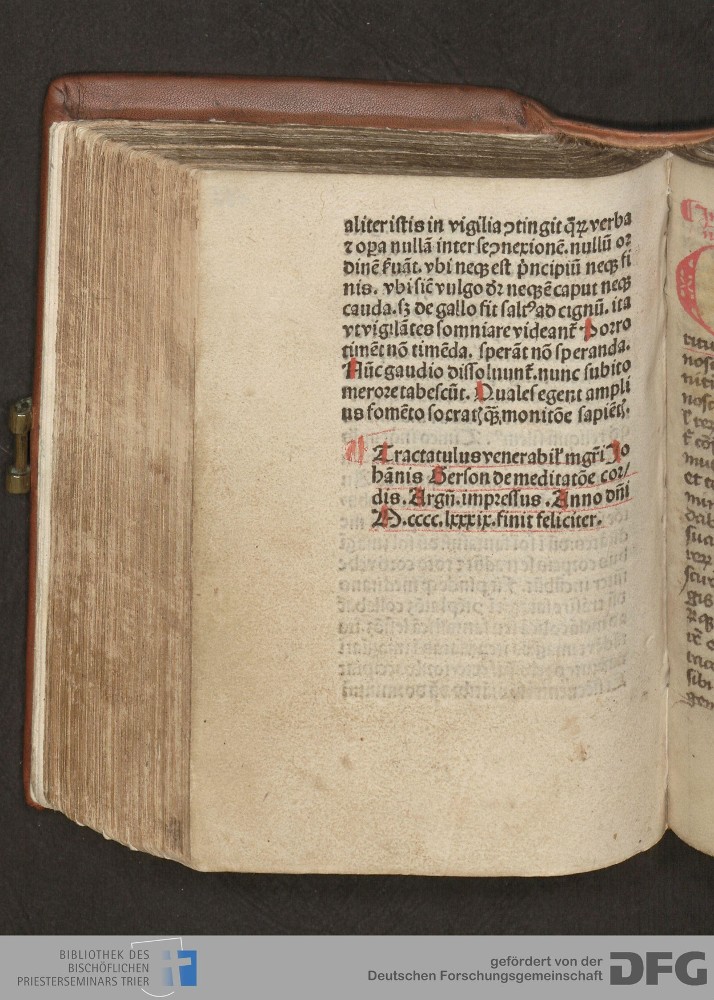 aliter istis in vigilia ꝯtingit qrꝝ verba
⁊ oꝑa nullā inter se ꝯnexionē. nullū or
dinē ẜuāt. vbi neqꝫ est pͥncipiū neqꝫ fi
nis. vbi sic̄ vulgo dr̄ neqꝫ ē caput neqꝫ
cauda. sꝫ de gallo fit saltꝰ ad cignū. ita
vt vigilātes somniare videant᷑ Porro
timēt nō timēda. sperāt nō speranda.
Nūc gaudio dissoluunt᷑. nunc subito
merore tabescūt. Quales egent ampli
us fomēto socratꝭ qꝫ̄ monitōe sapiētꝭ.
¶ Tractatulus venerabil̕ mgr̄i Jo
hānis Gerson de meditatōe cor/
dis. Argn̄. impressus. Anno dn̄i
M.cccc.lxxxix. finit feliciter.
BIBLIOTHEK DES
BISCHÖFLICHEN
PRIESTERSEMINARS TRIER
gefördert von der
Deutschen Forschungsgemeinschaft DFG